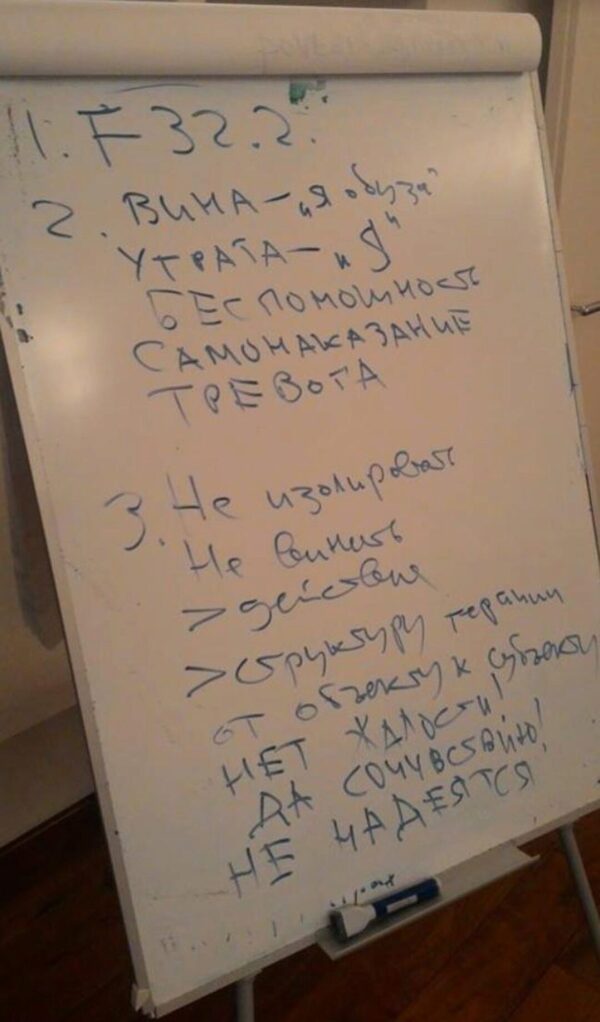 1. F32.2.
2. ВИНА – „я обуза"
УТРАТА – „Я"
БЕСПОМОШНОСТЬ
САМОНАКАЗАНИЕ
ТРЕВОГА
3. Не изолировать
Не винить
> действия
> структуру терапии
от объекту к субъекту
НЕТ ЖАЛОСТИ!
ДА СОЧУВСТВИЮ!
НЕ НАДЕЯТСЯ